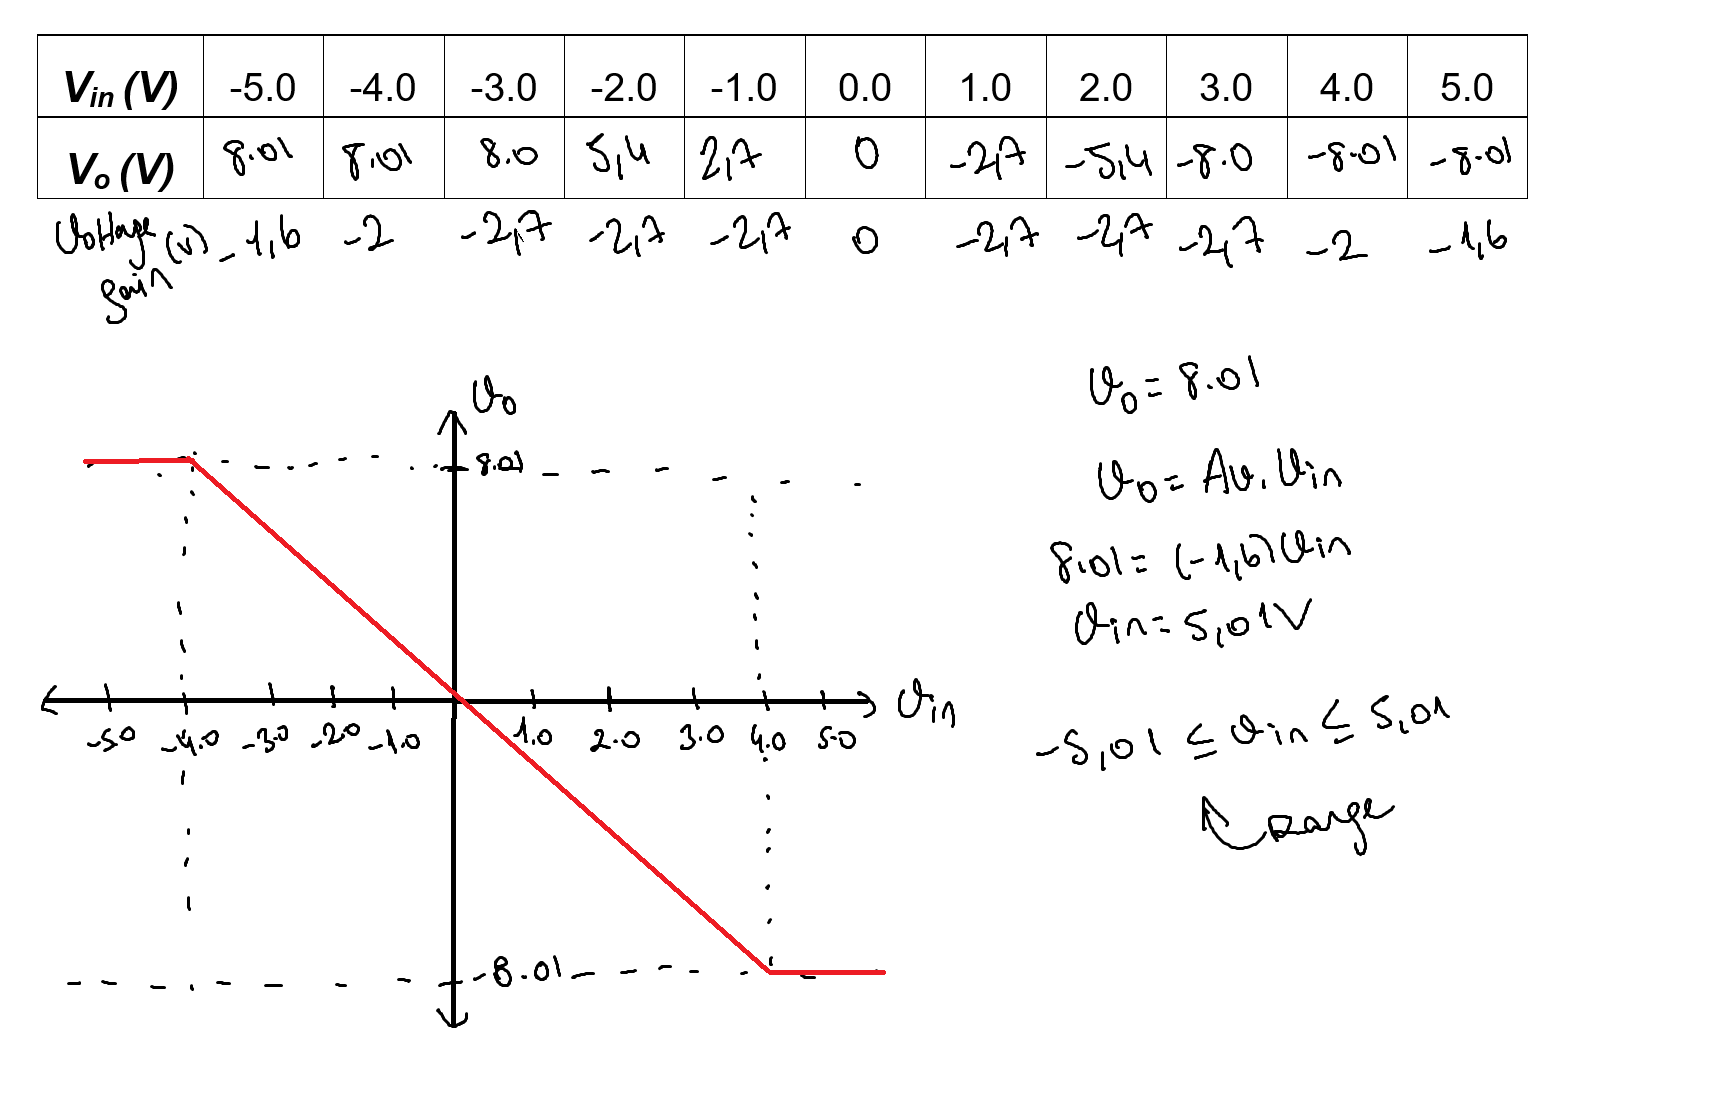 Vin (V) -5.0 -4.0 -3.0 -2.0 -1.0 0.0 1.0 2.0 3.0 4.0 5.0
Vo (V) 8.01 8.01 8.0 5,4 2,7 0 -2,7 -5,4 -8.0 -8.01 -8.01
Voltage gain (V) -1,6 -2 -2,7 -2,7 -2,7 0 -2,7 -2,7 -2,7 -2 -1,6
Vo
8.01
-5.0 -4.0 -3.0 -2.0 -1.0 1.0 2.0 3.0 4.0 5.0
Vin
-8.01
Vo = 8.01
Vo = Av. Vin
8.01 = (-1,6) Vin
Vin = 5,01V
-5,01 ≤ Vin ≤ 5,01
Range